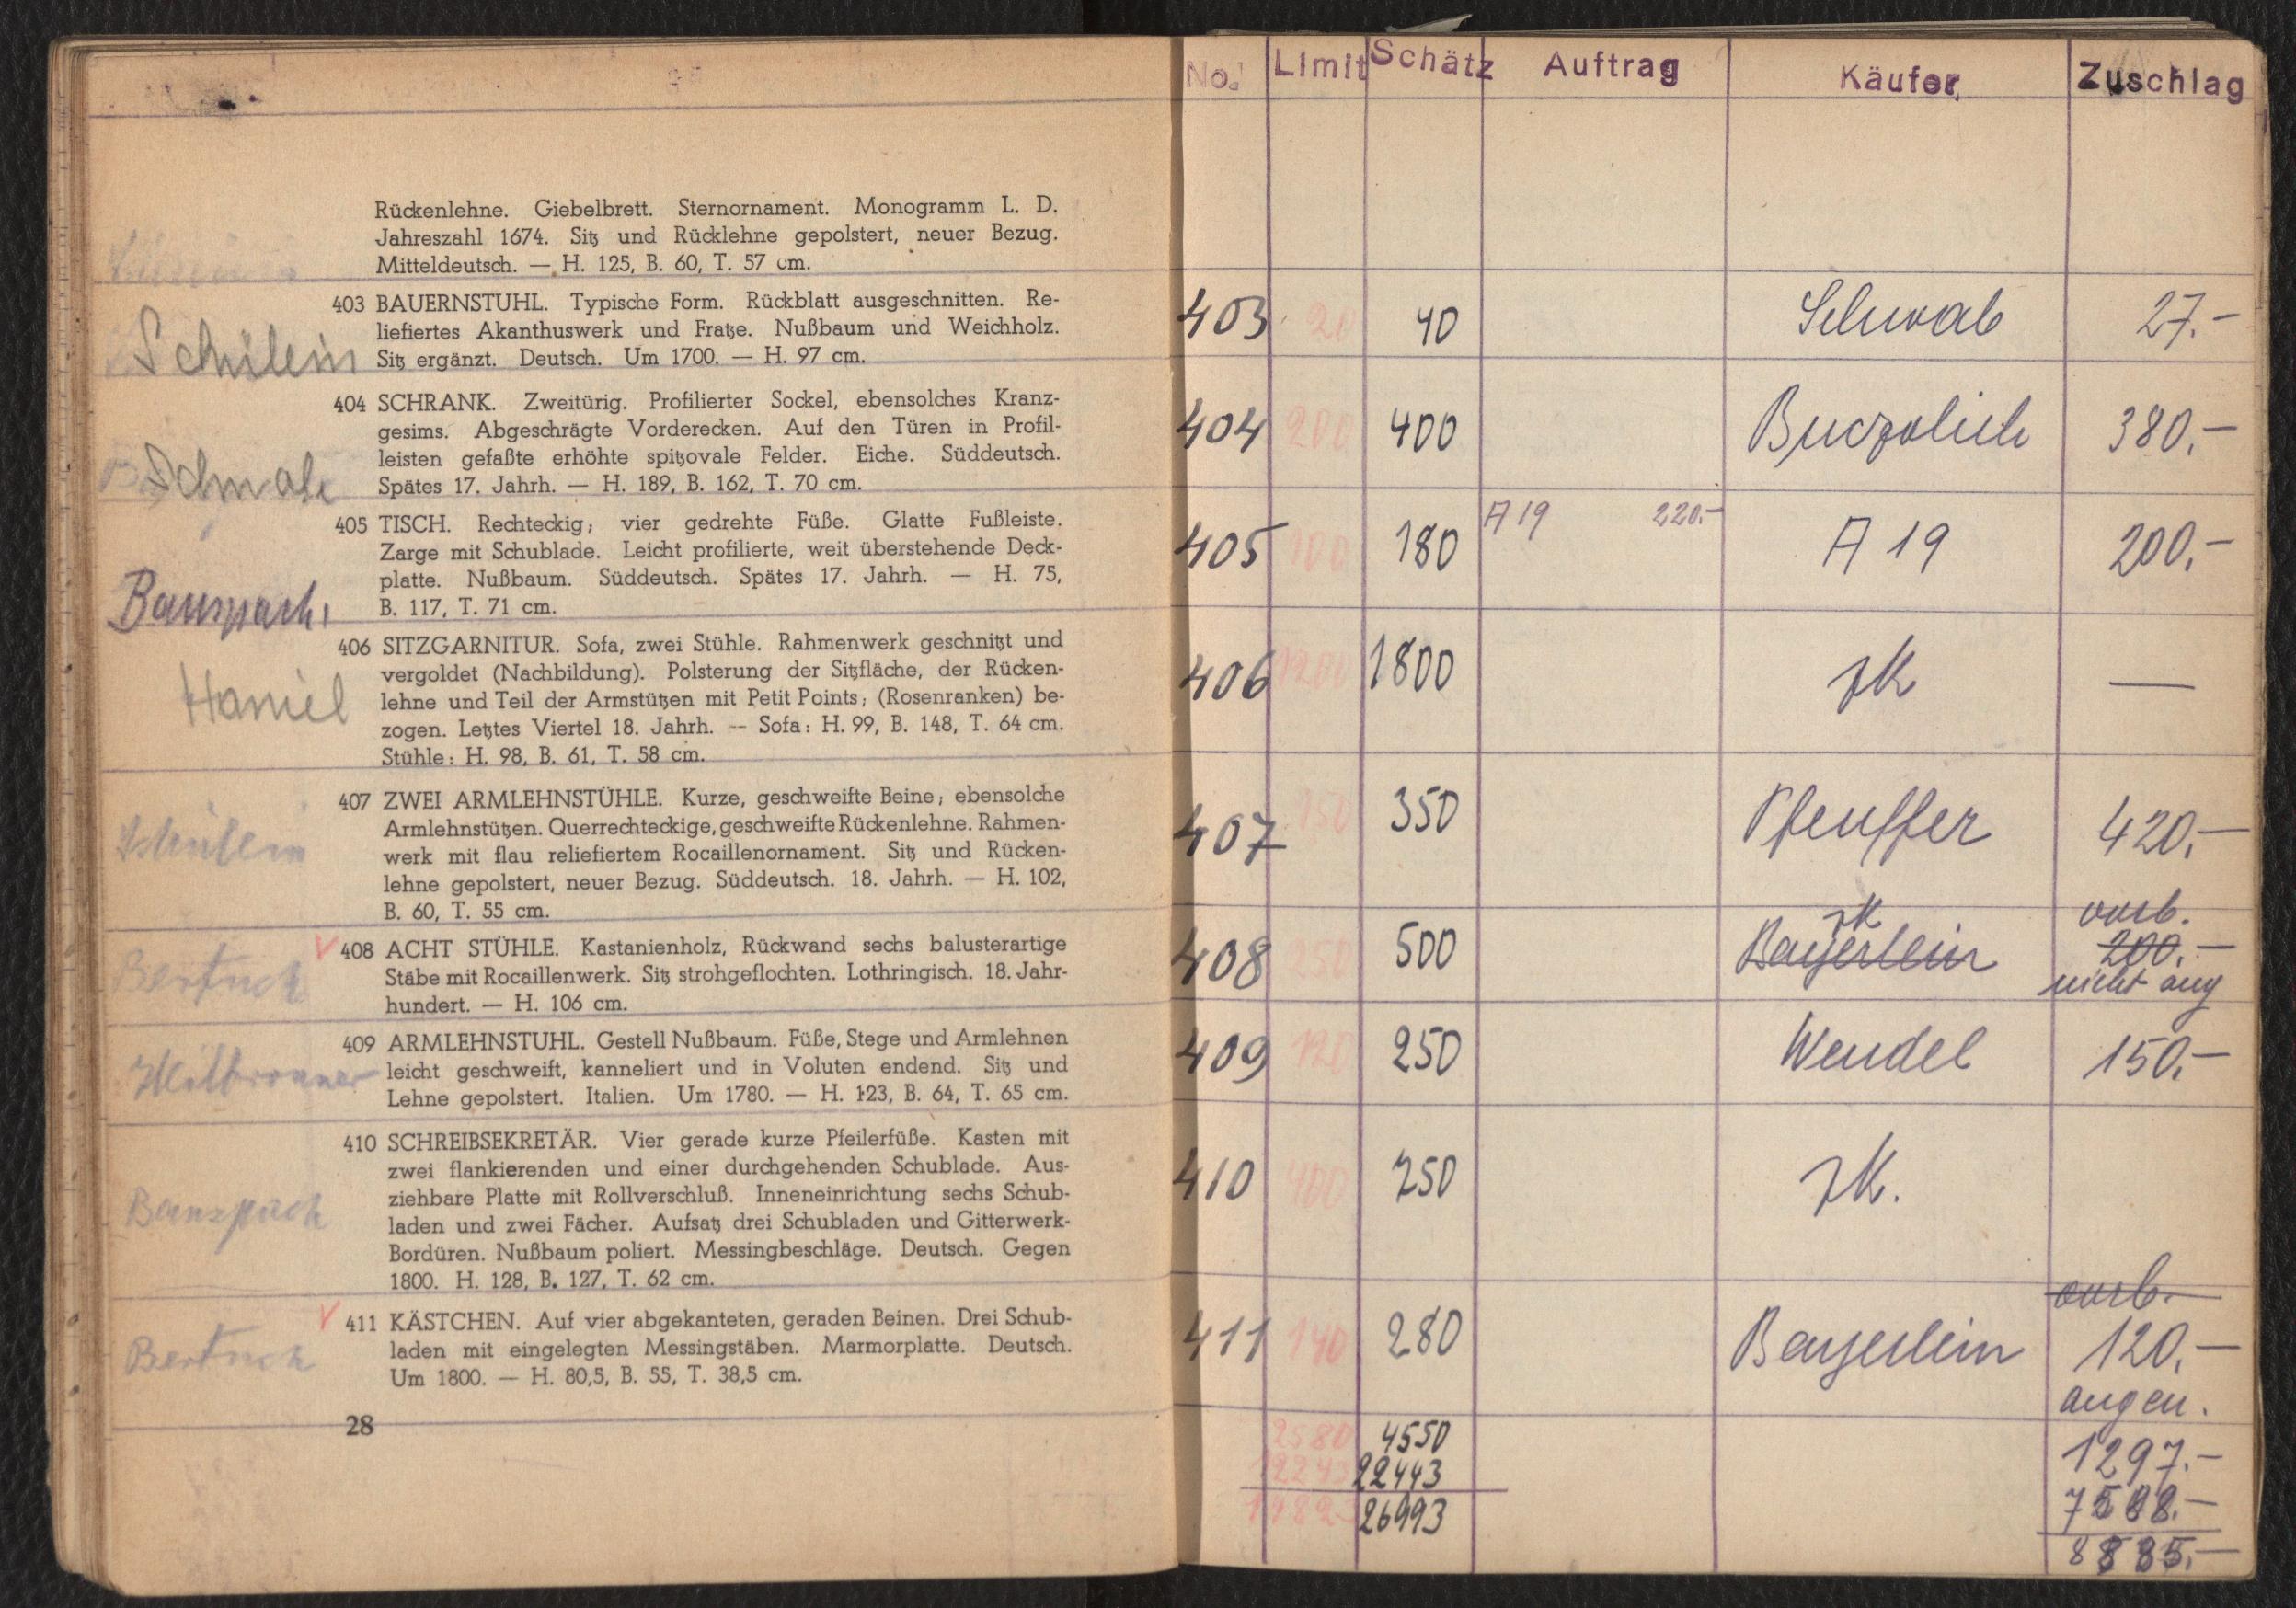 Rückenlehne. Giebelbrett. Sternornament. Monogramm L. D.
Jahreszahl 1674. Sitz und Rücklehne gepolstert, neuer Bezug.
Mitteldeutsch. — H. 125, B. 60, T. 57 cm.
Schülein
403 BAUERNSTUHL. Typische Form. Rückblatt ausgeschnitten. Re-
liefiertes Akanthuswerk und Fratze. Nußbaum und Weichholz.
Sitz ergänzt. Deutsch. Um 1700. — H. 97 cm.
404 SCHRANK. Zweitürig. Profilierter Sockel, ebensolches Kranz-
gesims. Abgeschrägte Vorderecken. Auf den Türen in Profil-
leisten gefaßte erhöhte spitzovale Felder. Eiche. Süddeutsch.
Spätes 17. Jahrh. — H. 189, B. 162, T. 70 cm.
405 TISCH. Rechteckig; vier gedrehte Füße. Glatte Fußleiste.
Zarge mit Schublade. Leicht profilierte, weit überstehende Deck-
platte. Nußbaum. Süddeutsch. Spätes 17. Jahrh. — H. 75,
B. 117, T. 71 cm.
Haniel
406 SITZGARNITUR. Sofa, zwei Stühle. Rahmenwerk geschnitzt und
vergoldet (Nachbildung). Polsterung der Sitzfläche, der Rücken-
lehne und Teil der Armstützen mit Petit Points; (Rosenranken) be-
zogen. Letztes Viertel 18. Jahrh. -- Sofa: H. 99, B. 148, T. 64 cm.
Stühle: H. 98, B. 61, T. 58 cm.
Schülein
407 ZWEI ARMLEHNSTÜHLE. Kurze, geschweifte Beine; ebensolche
Armlehnstützen. Querrechteckige, geschweifte Rückenlehne. Rahmen-
werk mit flau reliefiertem Rocaillenornament. Sitz und Rücken-
lehne gepolstert, neuer Bezug. Süddeutsch. 18. Jahrh. — H. 102,
B. 60, T. 55 cm.
Bertuch
408 ACHT STÜHLE. Kastanienholz, Rückwand sechs balusterartige
Stäbe mit Rocaillenwerk. Sitz strohgeflochten. Lothringisch. 18. Jahr-
hundert. — H. 106 cm.
Heilbronner
409 ARMLEHNSTUHL. Gestell Nußbaum. Füße, Stege und Armlehnen
leicht geschweift, kanneliert und in Voluten endend. Sitz und
Lehne gepolstert. Italien. Um 1780. — H. 123, B. 64, T. 65 cm.
410 SCHREIBSEKRETÄR. Vier gerade kurze Pfeilerfüße. Kasten mit
zwei flankierenden und einer durchgehenden Schublade. Aus-
ziehbare Platte mit Rollverschluß. Inneneinrichtung sechs Schub-
laden und zwei Fächer. Aufsatz drei Schubladen und Gitterwerk-
Bordüren. Nußbaum poliert. Messingbeschläge. Deutsch. Gegen
1800. H. 128, B. 127, T. 62 cm.
Bertuch
411 KÄSTCHEN. Auf vier abgekanteten, geraden Beinen. Drei Schub-
laden mit eingelegten Messingstäben. Marmorplatte. Deutsch.
Um 1800. — H. 80,5, B. 55, T. 38,5 cm.
28
No. Limit Schätz Auftrag Käufer Zuschlag
403 20 40 Schwab 27.-
404 200 400 380.-
405 100 180 A 19 220.- A 19 200.-
406 1200 1800 zK —
407 150 350 Pfeuffer 420.-
408 250 500 zK Bayerlein vorb. 200.-
nicht ang
409 120 250 Wendel 150.-
410 400 750 zK.
411 140 280 Bayerlein vorb. 120.-
angen.
2580 4550 1297.-
22443
26993